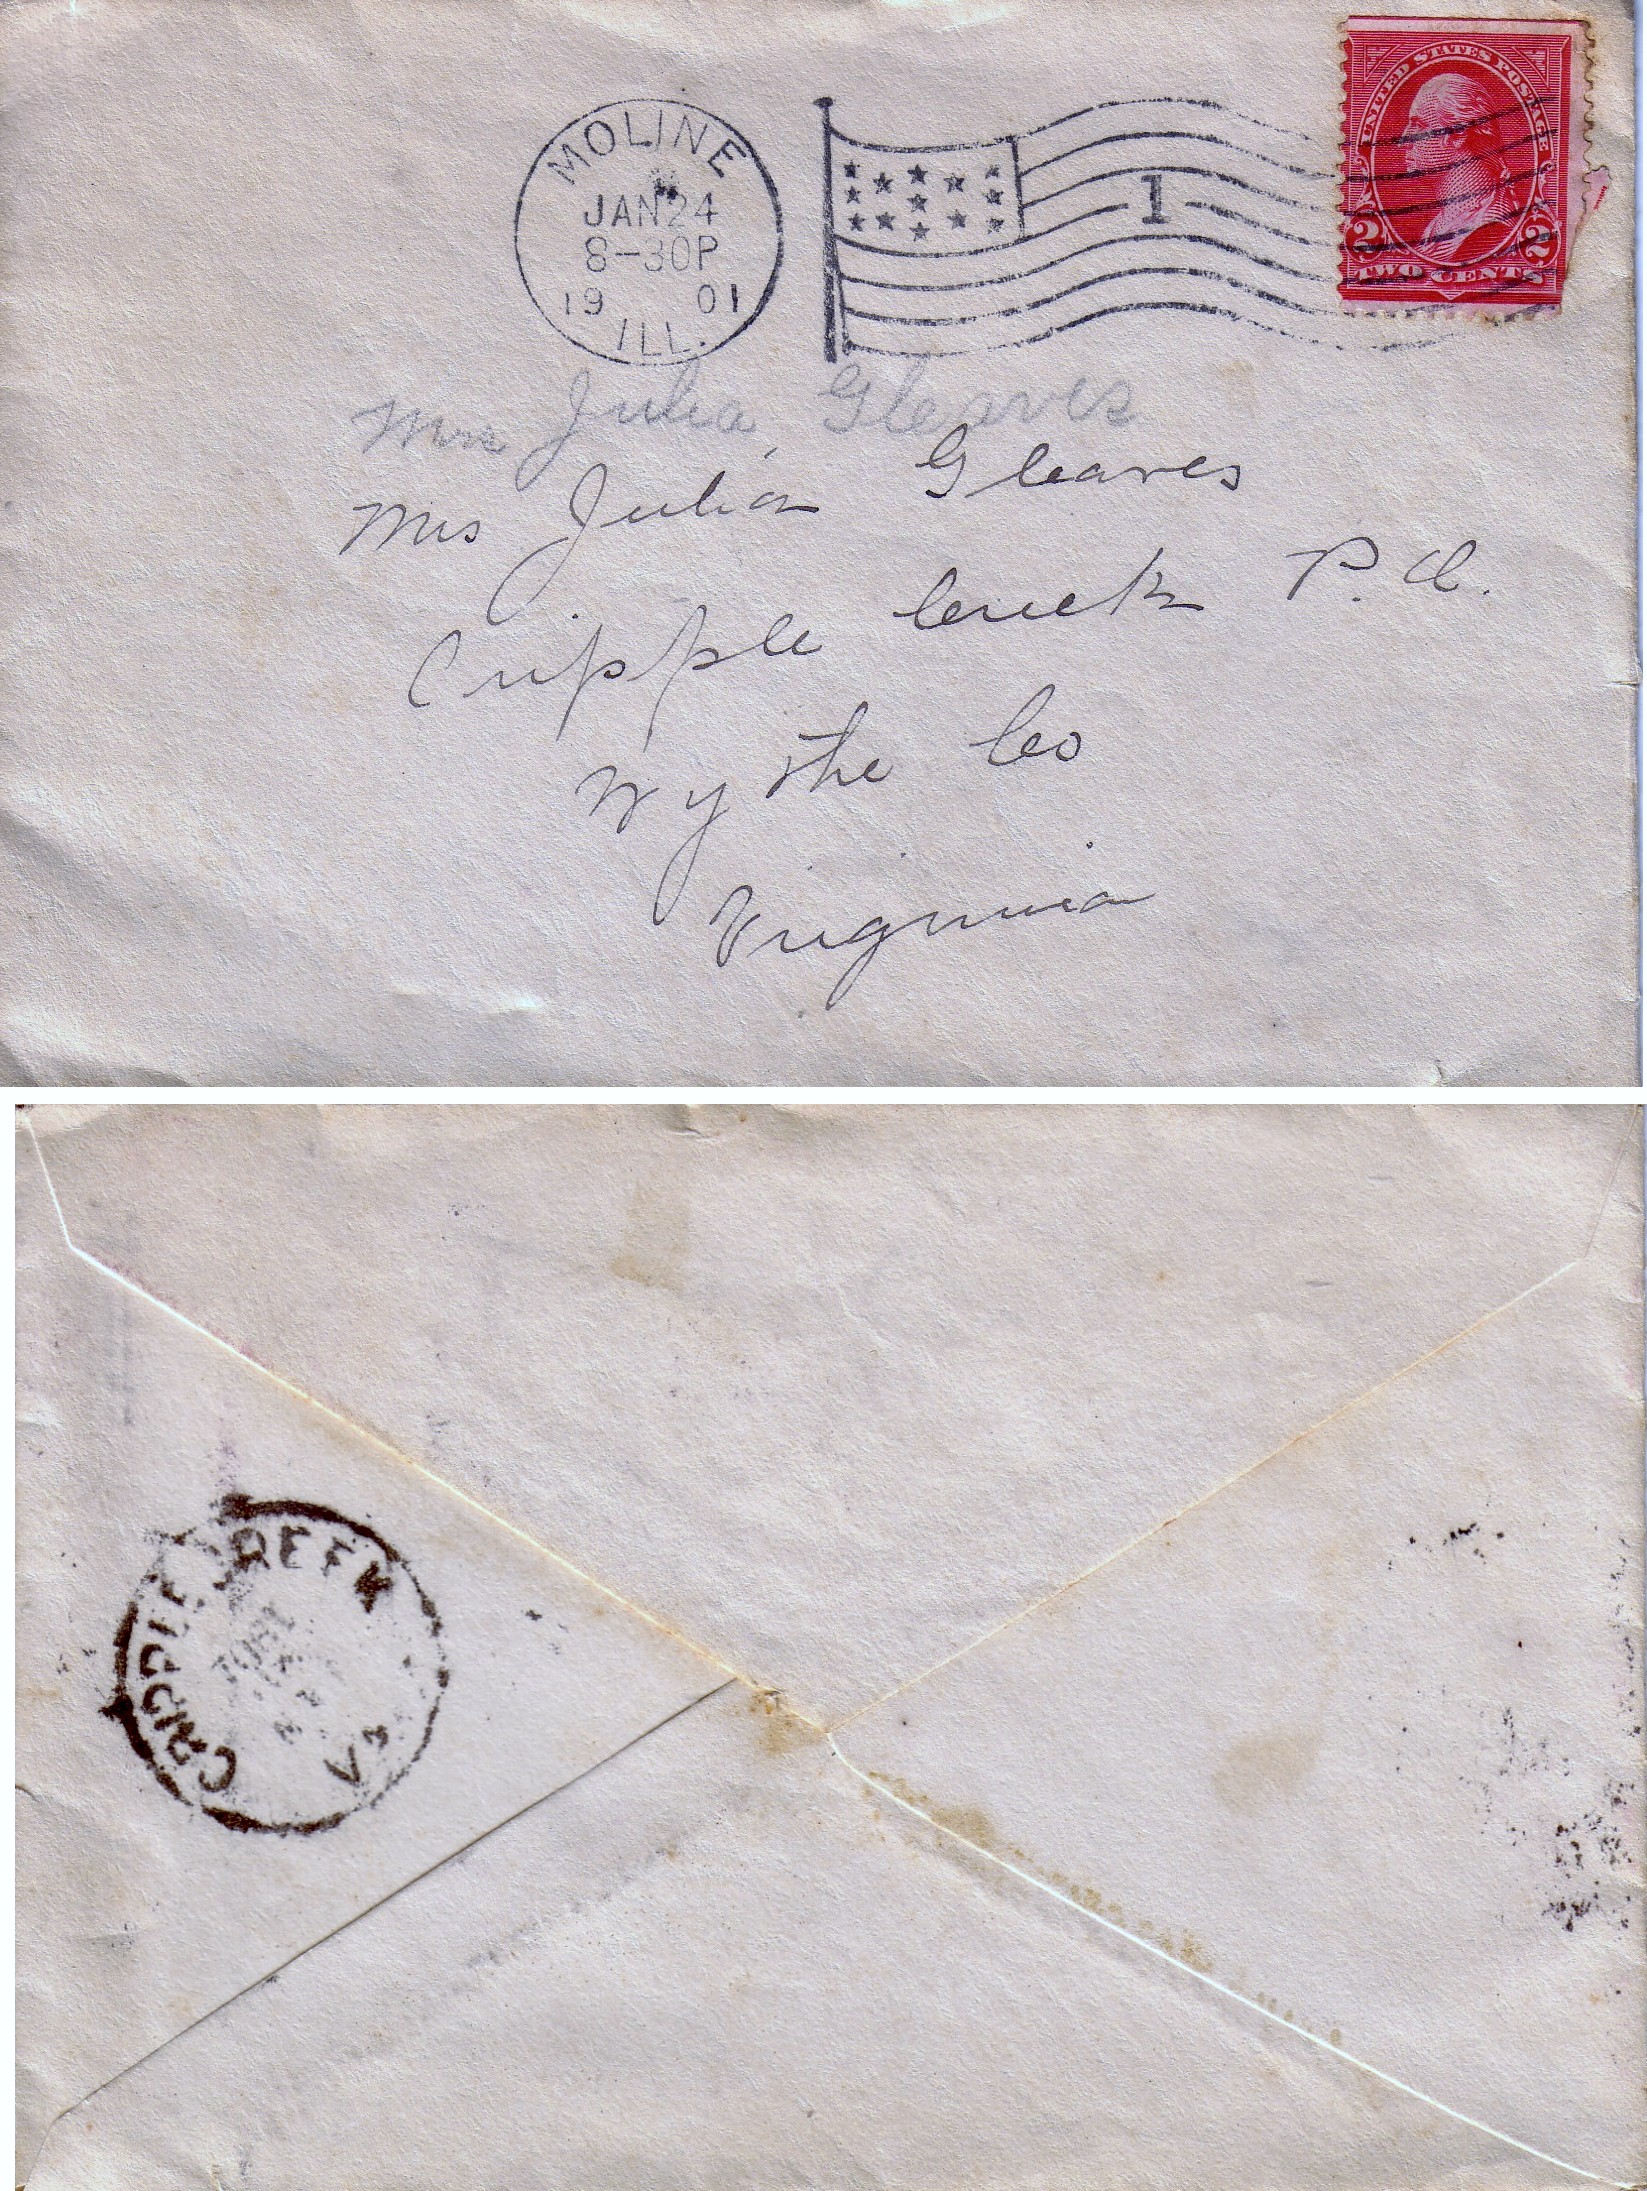 UNITED STATES POSTAGE
2 2
TWO CENTS
MOLINE
JAN 24
8-30P
19 01
ILL.
1
Mrs Julia Gleaves
Mrs Julian Gleaves
Cripple Creek P.O.
Wythe Co
Virginia
CRIPPLE CREEK
1901
VA